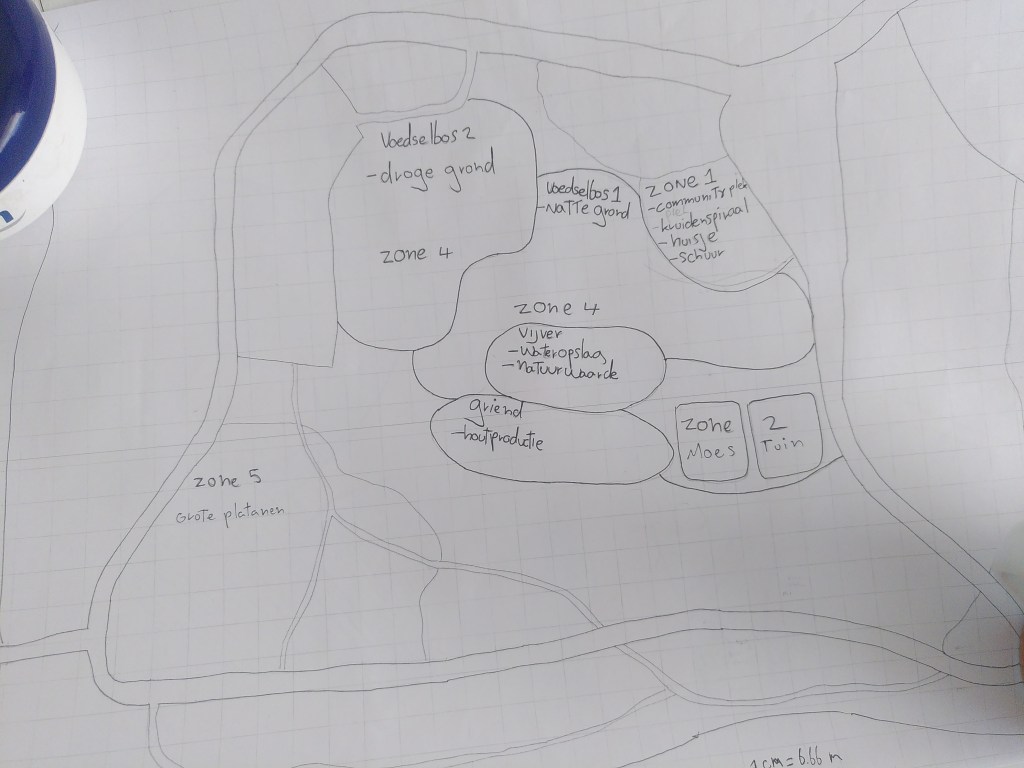 Voedselbos 2
- droge grond
zone 4
Voedselbos 1
- natte grond
zone 1
- community plek
- kruidenspiraal
- huisje
- schuur
zone 4
Vijver
- wateropslag
- natuurwaarde
griend
- houtproductie
zone 2
Moes Tuin
zone 5
Grote platanen
1 cm = 6.66 m